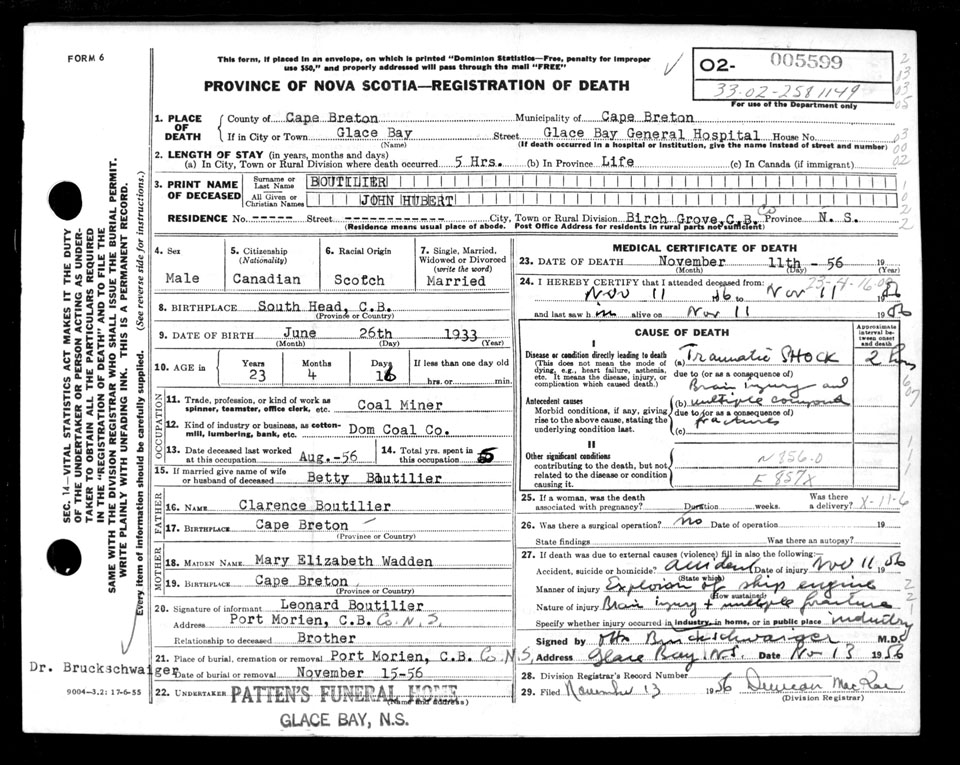 FORM 6
This form, if placed in an envelope, on which is printed "Dominion Statistics—Free, penalty for improper
use $50," and properly addressed will pass through the mail "FREE"
PROVINCE OF NOVA SCOTIA—REGISTRATION OF DEATH
O2- 005599
33-02-2581149
For use of the Department only
1. PLACE OF DEATH
County of Cape Breton Municipality of Cape Breton
If in City or Town Glace Bay Street Glace Bay General Hospital House No.
(Name) (If death occurred in a hospital or institution, give the name instead of street and number)
2. LENGTH OF STAY (in years, months and days)
(a) In City, Town or Rural Division where death occurred 5 Hrs. (b) In Province Life (c) In Canada (if immigrant)
3. PRINT NAME OF DECEASED
Surname or Last Name BOUTILIER
All Given or Christian Names JOHN HUBERT
RESIDENCE No. ----- Street ------------- City, Town or Rural Division Birch Grove, C.B. Co Province N. S.
(Residence means usual place of abode. Post Office Address for residents in rural parts not sufficient)
4. Sex Male
5. Citizenship (Nationality) Canadian
6. Racial Origin Scotch
7. Single, Married, Widowed or Divorced (write the word) Married
8. BIRTHPLACE South Head, C.B.
(Province or Country)
9. DATE OF BIRTH June 26th 1933
(Month) (Day) (Year)
10. AGE in Years 23 Months 4 Days 16 If less than one day old hrs. or min.
OCCUPATION
11. Trade, profession, or kind of work as spinner, teamster, office clerk, etc. Coal Miner
12. Kind of industry or business, as cotton-mill, lumbering, bank, etc. Dom Coal Co.
13. Date deceased last worked at this occupation Aug.-56
14. Total yrs. spent in this occupation 5
15. If married give name of wife or husband of deceased Betty Boutilier
FATHER
16. NAME Clarence Boutilier
17. BIRTHPLACE Cape Breton
(Province or Country)
MOTHER
18. MAIDEN NAME Mary Elizabeth Wadden
19. BIRTHPLACE Cape Breton
(Province or Country)
20. Signature of informant Leonard Boutilier
Address Port Morien, C.B. Co. N.S.
Relationship to deceased Brother
21. Place of burial, cremation or removal Port Morien, C.B. Co N.S,
Date of burial or removal November 15-56
22. UNDERTAKER PATTEN'S FUNERAL HOME
(Name and address)
GLACE BAY, N.S.
MEDICAL CERTIFICATE OF DEATH
23. DATE OF DEATH November 11th - 56 19
(Month) (Day) (Year)
24. I HEREBY CERTIFY that I attended deceased from:
Nov 11 56 to Nov 11 1956
and last saw him alive on Nov 11 1956
CAUSE OF DEATH
Approximate interval between onset and death
I
Disease or condition directly leading to death (a) Traumatic SHOCK
(This does not mean the mode of dying, e.g., heart failure, asthenia, etc. It means the disease, injury, or complication which caused death.)
due to (or as a consequence of)
Brain injury and
Antecedent causes (b) multiple compound
Morbid conditions, if any, giving rise to the above cause, stating the underlying condition last.
due to (or as a consequence of)
fractures
(c)
II
Other significant conditions
contributing to the death, but not related to the disease or condition causing it.
N 856.0
E 857X
25. If a woman, was the death associated with pregnancy? Duration weeks. Was there a delivery? X-11-6
26. Was there a surgical operation? no Date of operation 19
State findings Was there an autopsy?
27. If death was due to external causes (violence) fill in also the following:
Accident, suicide or homicide? accident Date of injury Nov 11 1956
(State which)
Manner of injury Explosion of ship engine
(How sustained)
Nature of injury Brain injury + multiple fracture
Specify whether injury occurred in industry, in home, or in public place industry
Signed by Otto Bruckschwaiger M.D.
Address Glace Bay, N.S. Date Nov 13 1956
28. Division Registrar's Record Number
29. Filed November 13 1956 Duncan MacRae
(Division Registrar)
SEC. 14—VITAL STATISTICS ACT MAKES IT THE DUTY
OF THE UNDERTAKER OR PERSON ACTING AS UNDER-
TAKER TO OBTAIN ALL THE PARTICULARS REQUIRED
IN THE "REGISTRATION OF DEATH" AND TO FILE THE
SAME WITH THE DIVISION REGISTRAR WHO SHALL ISSUE THE BURIAL PERMIT.
WRITE PLAINLY WITH UNFADING INK. THIS IS A PERMANENT RECORD.
Every item of information should be carefully supplied. (See reverse side for instructions.)
Dr. Bruckschwaiger
9004-3.2: 17-6-55